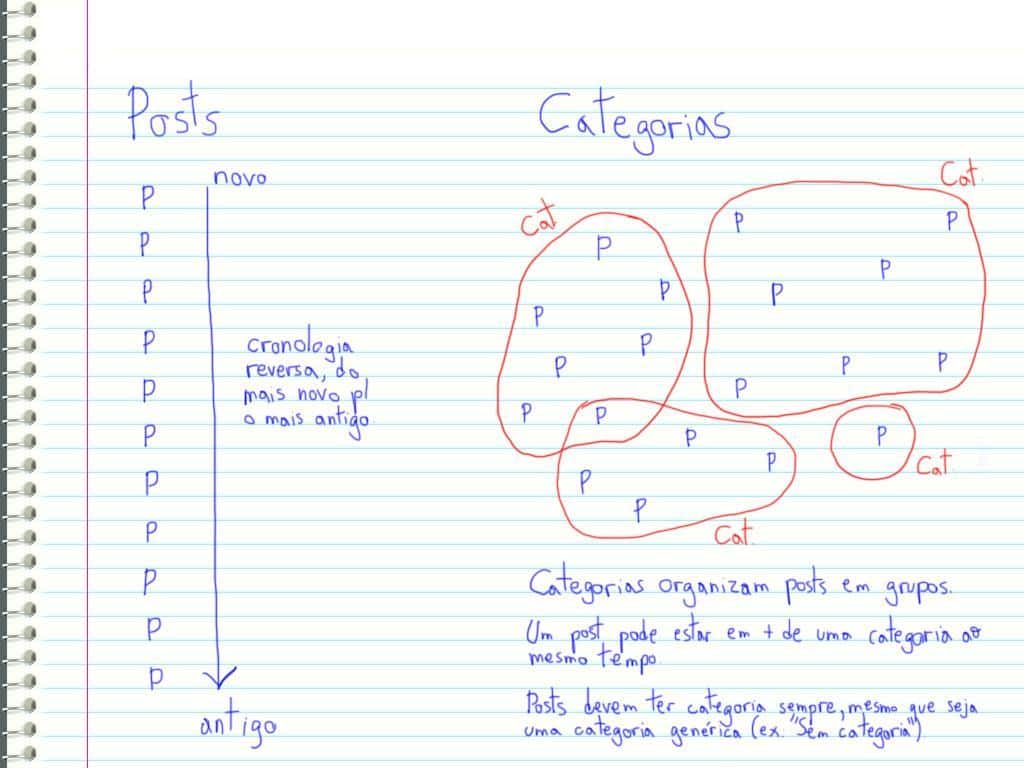 Posts
novo
P
P
P
P
P
P
P
P
P
P
P
cronologia
reversa, do
mais novo p/
o mais antigo
antigo
Categorias
Cat
P
P
P
P
P
P
P
Cat.
P
P
P
P
P
P
P
P
P
P
P
Cat.
P
Cat.
Categorias organizam posts em grupos.
Um post pode estar em + de uma categoria ao
mesmo tempo.
Posts devem ter categoria sempre, mesmo que seja
uma categoria genérica (ex. "Sem categoria")